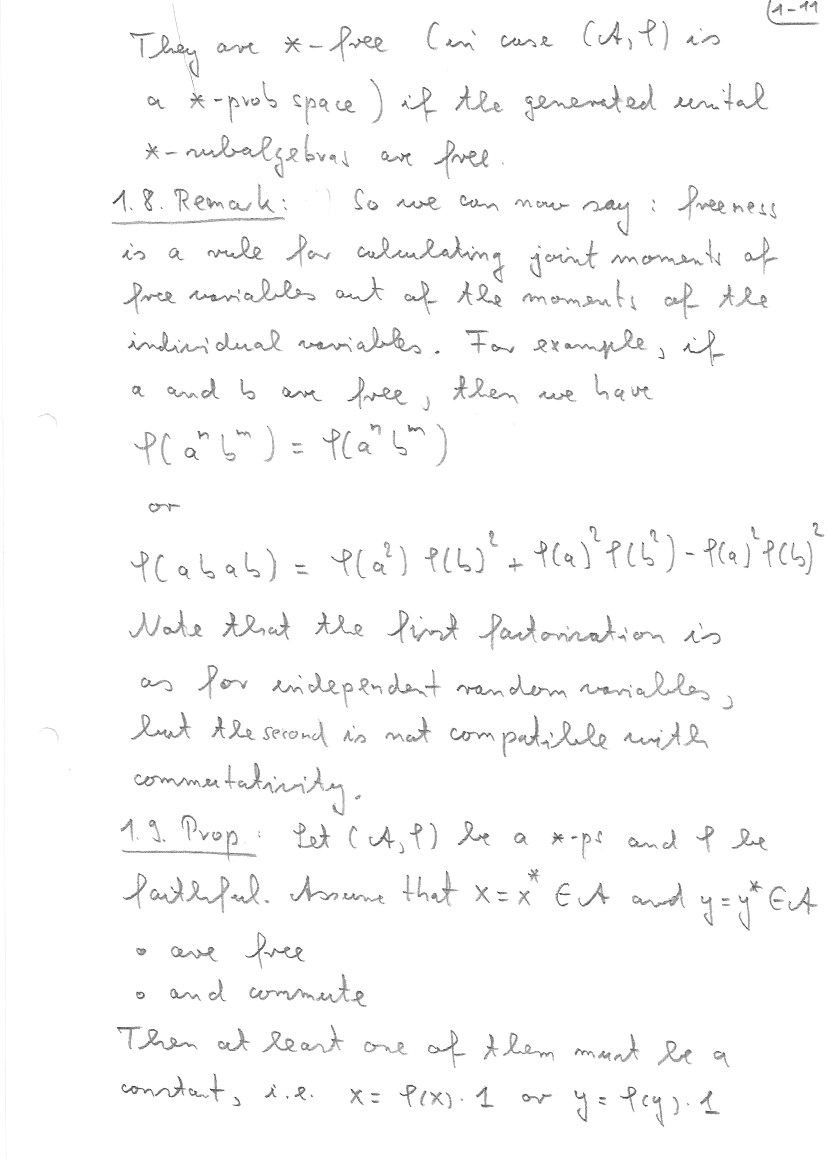 1-11
They are *-free (in case (A, φ) is
a *-prob space) if the generated unital
*-subalgebras are free.
1.8. Remark: So we can now say: freeness
is a rule for calculating joint moments of
free variables out of the moments of the
individual variables. For example, if
a and b are free, then we have
φ(aⁿ bᵐ) = φ(aⁿ bᵐ)
or
φ(abab) = φ(a²) φ(b)² + φ(a)² φ(b²) - φ(a)² φ(b)²
Note that the first factorization is
as for independent random variables,
but the second is not compatible with
commutativity.
1.9. Prop: Let (A, φ) be a *-ps and φ be
faithful. Assume that x = x* ∈ A and y = y* ∈ A
∘ are free
∘ and commute
Then at least one of them must be a
constant, i.e. x = φ(x)·1 or y = φ(y)·1